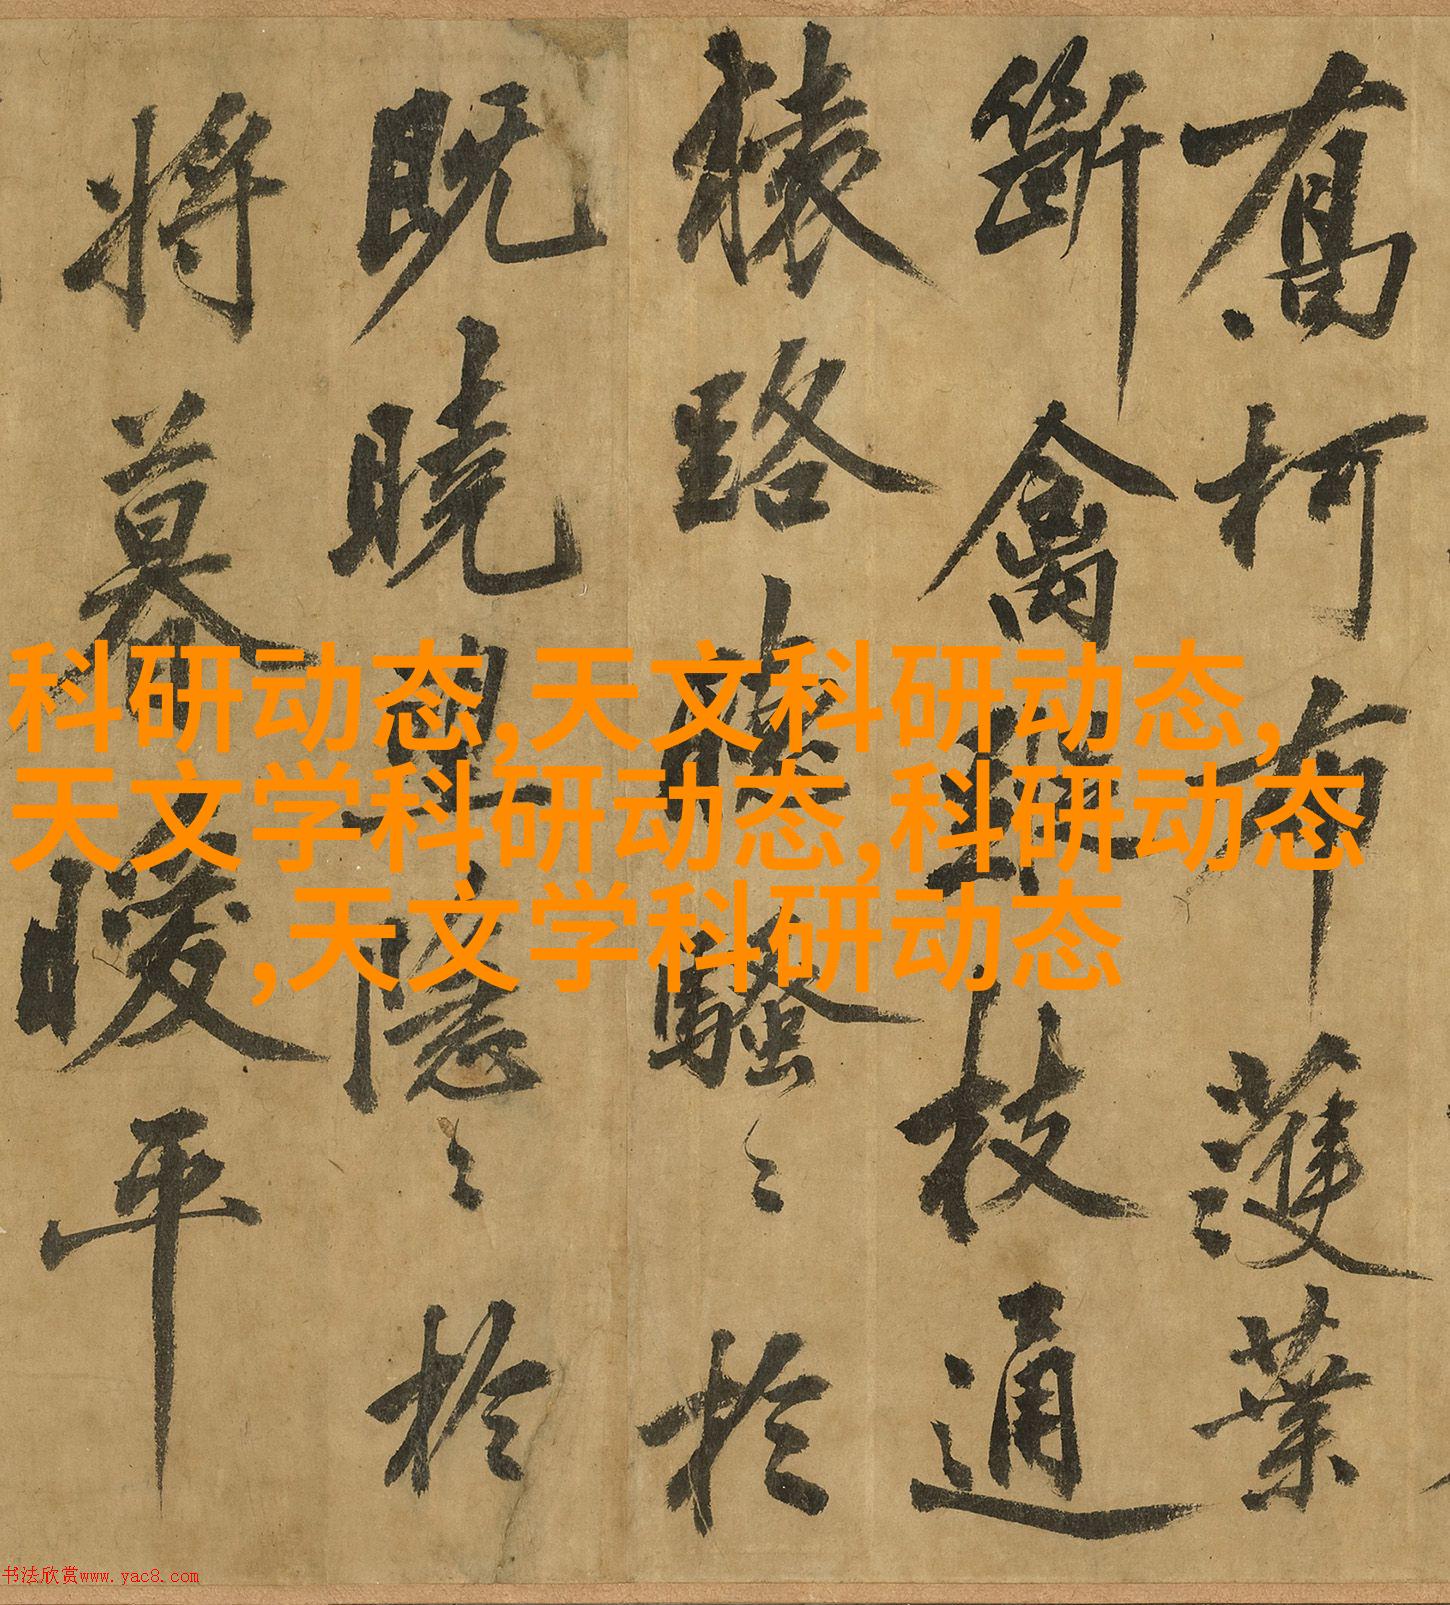 喬柯布濩葉
斷禽枝通
猿路騷〻於
既曉隱〻於
將暮暖平
科研动态,天文科研动态,
天文学科研动态,科研动态
,天文学科研动态
书法欣赏www.yac8.com